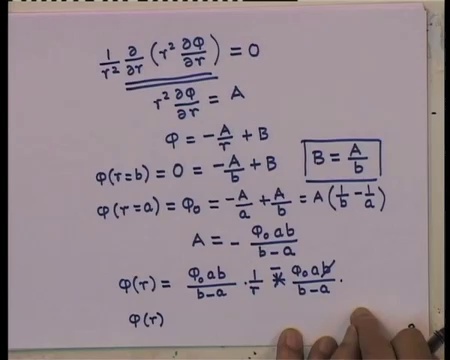 1/r² ∂/∂r (r² ∂φ/∂r) = 0
r² ∂φ/∂r = A
φ = -A/r + B
φ(r=b) = 0 = -A/b + B    B = A/b
φ(r=a) = φ₀ = -A/a + A/b = A(1/b - 1/a)
A = - φ₀ab/(b-a)
φ(r) = φ₀ab/(b-a) · 1/r - φ₀ab/(b-a) ·
φ(r)